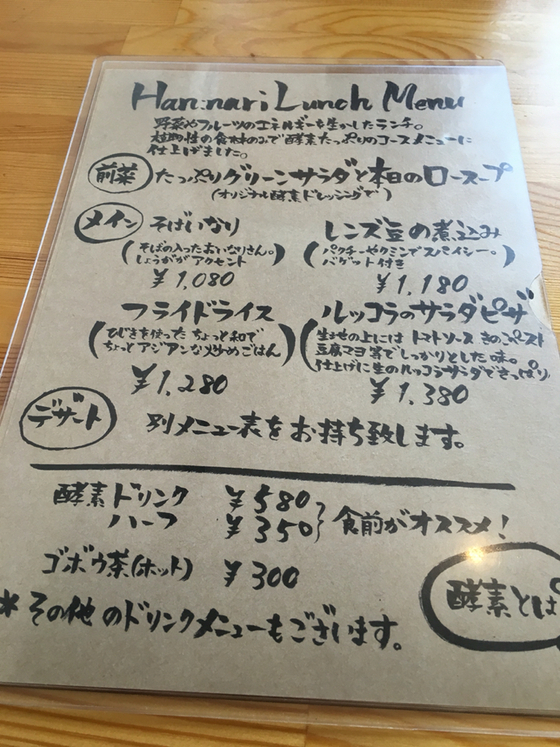 Han:nari Lunch Menu
野菜やフルーツのエネルギーを生かしたランチ。
植物性の食材のみで酵素たっぷりのコースメニューに
仕上げました。
前菜 たっぷりグリーンサラダと本日のロースープ
(オリジナル酵素ドレッシングで)
メイン
そばいなり
(そばの入ったおいなりさん。
しょうががアクセント)
¥1,080
レンズ豆の煮込み
(パクチーやクミンでスパイシー。
バゲット付き)
¥1,180
フライドライス
(ひじきを使ったちょっと和で
ちょっとアジアンな炒めごはん)
¥1,280
ルッコラのサラダピザ
(生地の上にはトマトソースきのこペースト
豆腐マヨ等でしっかりとした味。
仕上げに生のルッコラサラダでさっぱり
¥1,380
デザート 別メニュー表をお持ち致します。
酵素ドリンク ¥580
ハーフ ¥350 } 食前がオススメ!
ゴボウ茶(ホット) ¥300
*その他のドリンクメニューもございます。
酵素とは